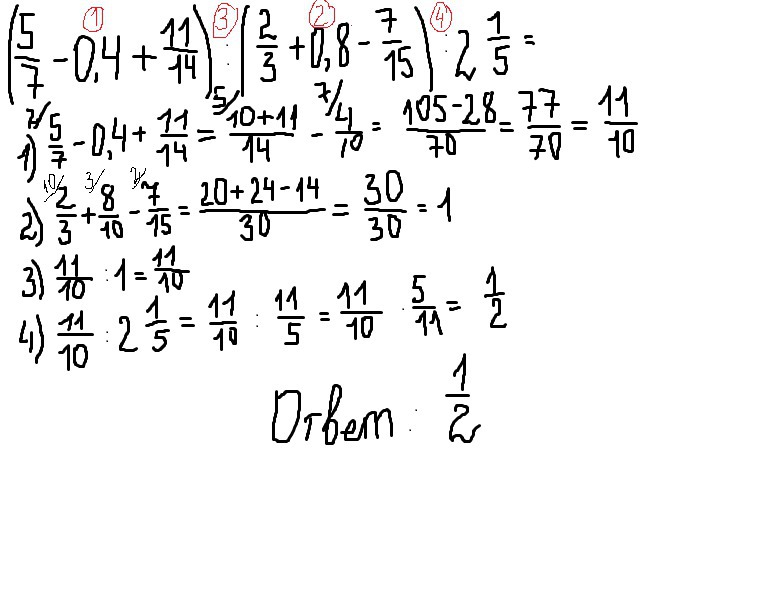 (5/7 - 0,4 + 11/14) : (2/3 + 0,8 - 7/15) : 2 1/5 =
① ③ ② ④
1) 5/7 - 0,4 + 11/14 = 10+11/14 - 4/10 = 105-28/70 = 77/70 = 11/10
2/ 5/ 7/
2) 2/3 + 8/10 - 7/15 = 20+24-14/30 = 30/30 = 1
10/ 3/ 2/
3) 11/10 : 1 = 11/10
4) 11/10 : 2 1/5 = 11/10 : 11/5 = 11/10 · 5/11 = 1/2
Ответ: 1/2